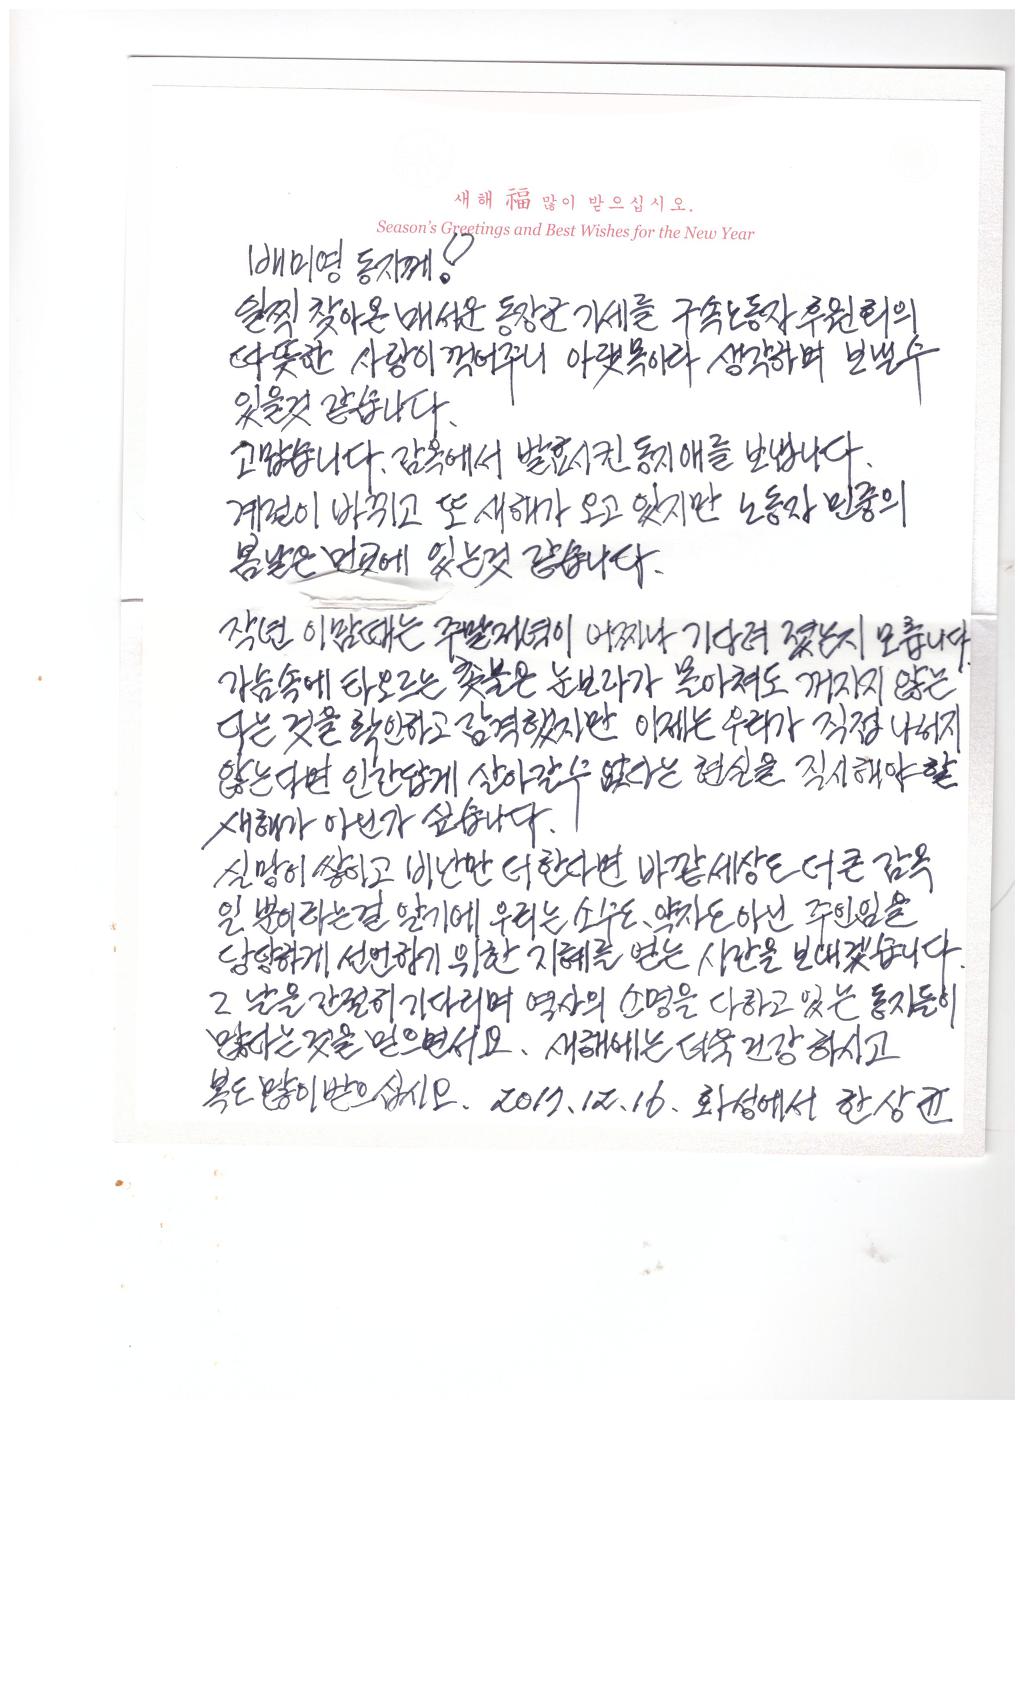 새해 福 많이 받으십시오.
Season's Greetings and Best Wishes for the New Year
배미영 동지께!
일찍 찾아온 매서운 동장군 기세를 구속노동자후원회의
따뜻한 사랑이 꺽어주니 아랫목이라 생각하며 보낼수
있을것 같습니다.
고맙습니다. 감옥에서 발효시킨 동지애를 보냅니다.
계절이 바뀌고 또 새해가 오고 있지만 노동자 민중의
봄날은 먼곳에 있는것 같습니다.
작년 이맘때는 주말저녁이 어찌나 기다려 졌는지 모릅니다.
가슴속에 타오르는 촛불은 눈보라가 몰아쳐도 꺼지지 않는
다는 것을 확인하고 감격했지만 이제는 우리가 직접 나서지
않는다면 인간답게 살아갈수 없다는 현실을 직시해야 할
새해가 아닌가 싶습니다.
실망이 쌓이고 비난만 더한다면 바깥세상도 더 큰 감옥
일 뿐이라는걸 알기에 우리는 소수도 약자도 아닌 주인임을
당당하게 선언하기 위한 지혜를 얻는 시간을 보내겠습니다.
그 날을 간절히 기다리며 역사의 소명을 다하고 있는 동지들이
많다는것을 믿으면서요. 새해에는 더욱 건강하시고
복도 많이 받으십시오. 2017.12.16. 화성에서 한상균